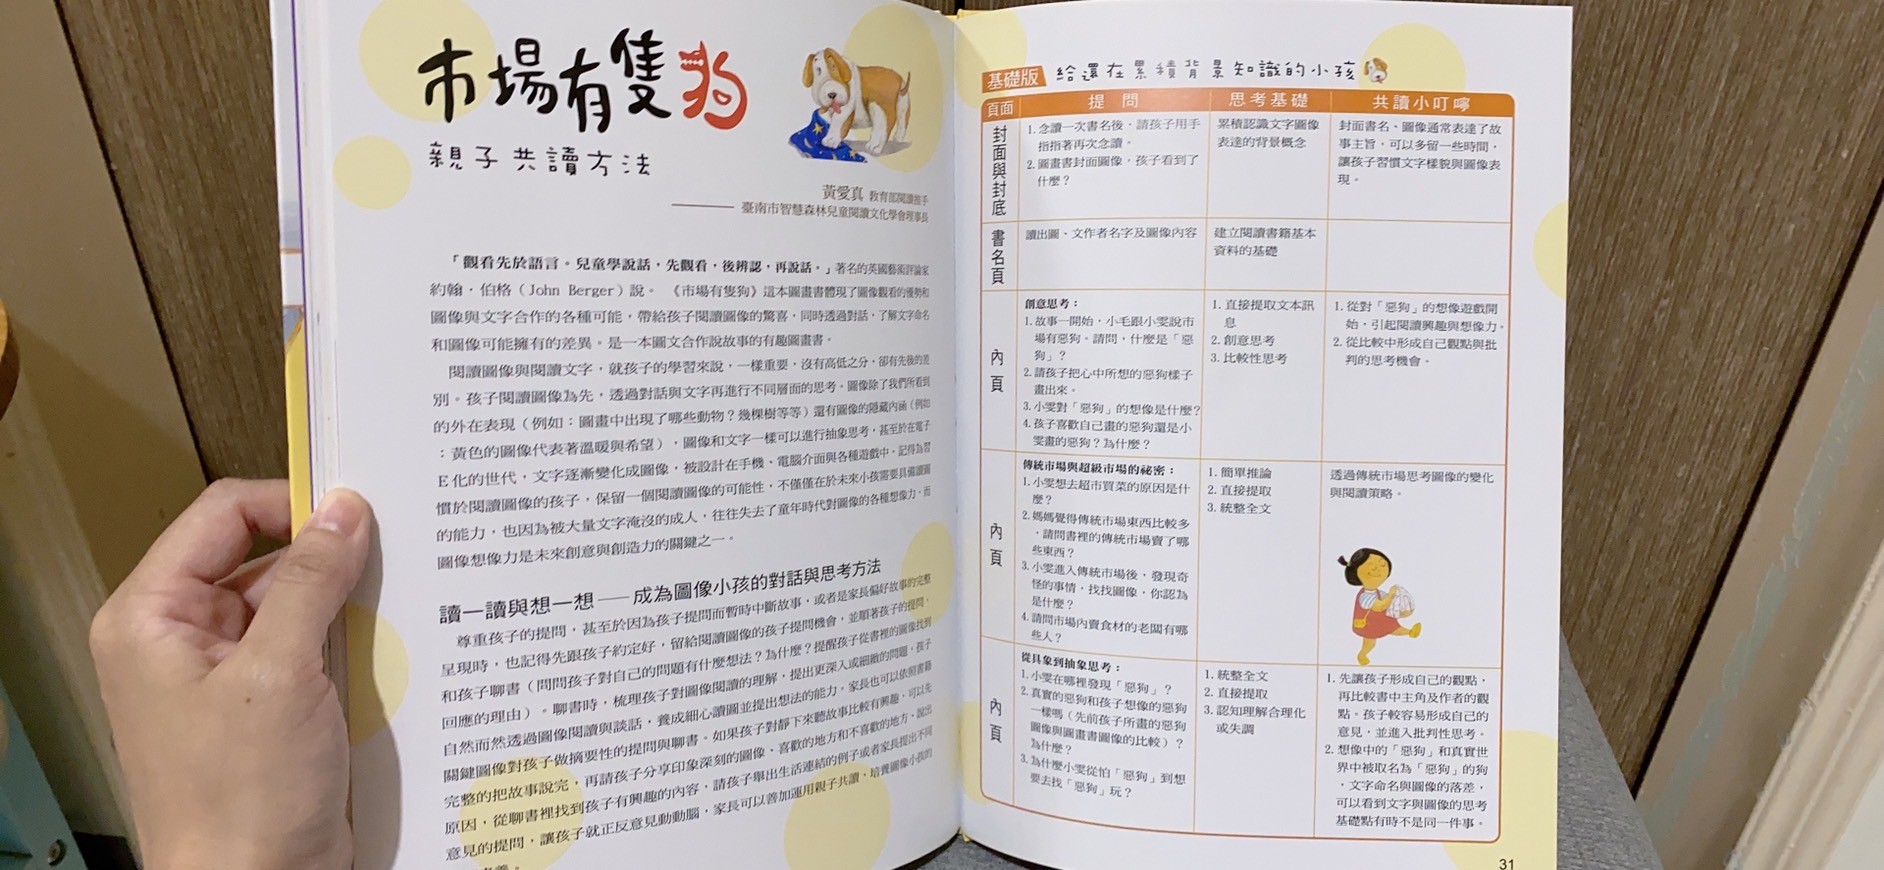 市場有隻狗
親子共讀方法
黃愛真 教育部閱讀推手
臺南市智慧森林兒童閱讀文化學會理事長
「觀看先於語言。兒童學說話，先觀看，後辨認，再說話。」著名的英國藝術評論家
約翰．伯格（John Berger）說。 《市場有隻狗》這本圖畫書體現了圖像觀看的優勢和
圖像與文字合作的各種可能，帶給孩子閱讀圖像的驚喜，同時透過對話，了解文字命名
和圖像可能擁有的差異。是一本圖文合作說故事的有趣圖畫書。
閱讀圖像與閱讀文字，就孩子的學習來說，一樣重要，沒有高低之分，卻有先後的差
別。孩子閱讀圖像為先，透過對話與文字再進行不同層面的思考。圖像除了我們所看到
的外在表現（例如：圖畫中出現了哪些動物？幾棵樹等等）還有圖像的隱藏內涵（例如
：黃色的圖像代表著溫暖與希望），圖像和文字一樣可以進行抽象思考，甚至於在電子
E化的世代，文字逐漸變化成圖像，被設計在手機、電腦介面與各種遊戲中。記得為習
慣於閱讀圖像的孩子，保留一個閱讀圖像的可能性，不僅僅在於未來小孩需要具備讀圖
的能力，也因為被大量文字淹沒的成人，往往失去了童年時代對圖像的各種想像力。而
圖像想像力是未來創意與創造力的關鍵之一。
讀一讀與想一想——成為圖像小孩的對話與思考方法
尊重孩子的提問，甚至於因為孩子提問而暫時中斷故事，或者是家長偏好故事的完整
呈現時，也記得先跟孩子約定好，留給閱讀圖像的孩子提問機會，並順著孩子的提問，
和孩子聊書（問問孩子對自己的問題有什麼想法？為什麼？提醒孩子從書裡的圖像找到
回應的理由）。聊書時，梳理孩子對圖像閱讀的理解，提出更深入或細緻的問題。孩子
自然而然透過圖像閱讀與談話，養成細心讀圖並提出想法的能力。家長也可以依照書籍
關鍵圖像對孩子做摘要性的提問與聊書。如果孩子對靜下來聽故事比較有興趣，可以先
完整的把故事說完，再請孩子分享印象深刻的圖像、喜歡的地方和不喜歡的地方，說出
原因，從聊書裡找到孩子有興趣的內容，請孩子舉出生活連結的例子或者家長提出不同
意見的提問，讓孩子就正反意見動動腦，家長可以善加運用親子共讀，培養圖像小孩的
基礎版 給還在累積背景知識的小孩
頁面 提問 思考基礎 共讀小叮嚀
封面與封底
1.念讀一次書名後，請孩子用手
指指著再次念讀。
2.圖畫書封面圖像，孩子看到了
什麼？
累積認識文字圖像
表達的背景概念
封面書名、圖像通常表達了故
事主旨，可以多留一些時間，
讓孩子習慣文字樣貌與圖像表
現。
書名頁
讀出圖、文作者名字及圖像內容
建立閱讀書籍基本
資料的基礎
內頁
創意思考：
1.故事一開始，小毛跟小雯說市
場有惡狗。請問，什麼是「惡
狗」？
2.請孩子把心中所想的惡狗樣子
畫出來。
3.小雯對「惡狗」的想像是什麼？
4.孩子喜歡自己畫的惡狗還是小
雯畫的惡狗？為什麼？
1.直接提取文本訊
息
2.創意思考
3.比較性思考
1.從對「惡狗」的想像遊戲開
始，引起閱讀興趣與想像力。
2.從比較中形成自己觀點與批
判的思考機會。
內頁
傳統市場與超級市場的祕密：
1.小雯想去超市買菜的原因是什
麼？
2.媽媽覺得傳統市場東西比較多
，請問書裡的傳統市場賣了哪
些東西？
3.小雯進入傳統市場後，發現奇
怪的事情，找找圖像，你認為
是什麼？
4.請問市場內賣食材的老闆有哪
些人？
1.簡單推論
2.直接提取
3.統整全文
透過傳統市場思考圖像的變化
與閱讀策略。
內頁
從具象到抽象思考：
1.小雯在哪裡發現「惡狗」？
2.真實的惡狗和孩子想像的惡狗
一樣嗎（先前孩子所畫的惡狗
圖像與圖畫書圖像的比較）？
為什麼？
3.為什麼小雯從怕「惡狗」到想
要去找「惡狗」玩？
1.統整全文
2.直接提取
3.認知理解合理化
或失調
1.先讓孩子形成自己的觀點，
再比較書中主角及作者的觀
點。孩子較容易形成自己的
意見，並進入批判性思考。
2.想像中的「惡狗」和真實世
界中被取名為「惡狗」的狗
，文字命名與圖像的落差，
可以看到文字與圖像的思考
基礎點有時不是同一件事。
31